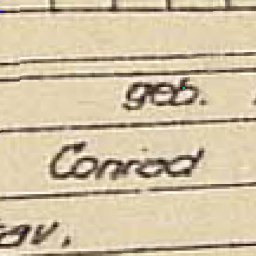 geb.
Conrad
av.